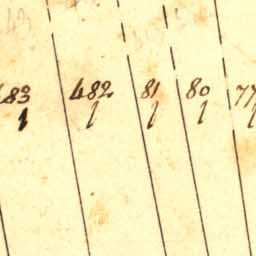 483 482 81 80 77
1 1 1 1 1